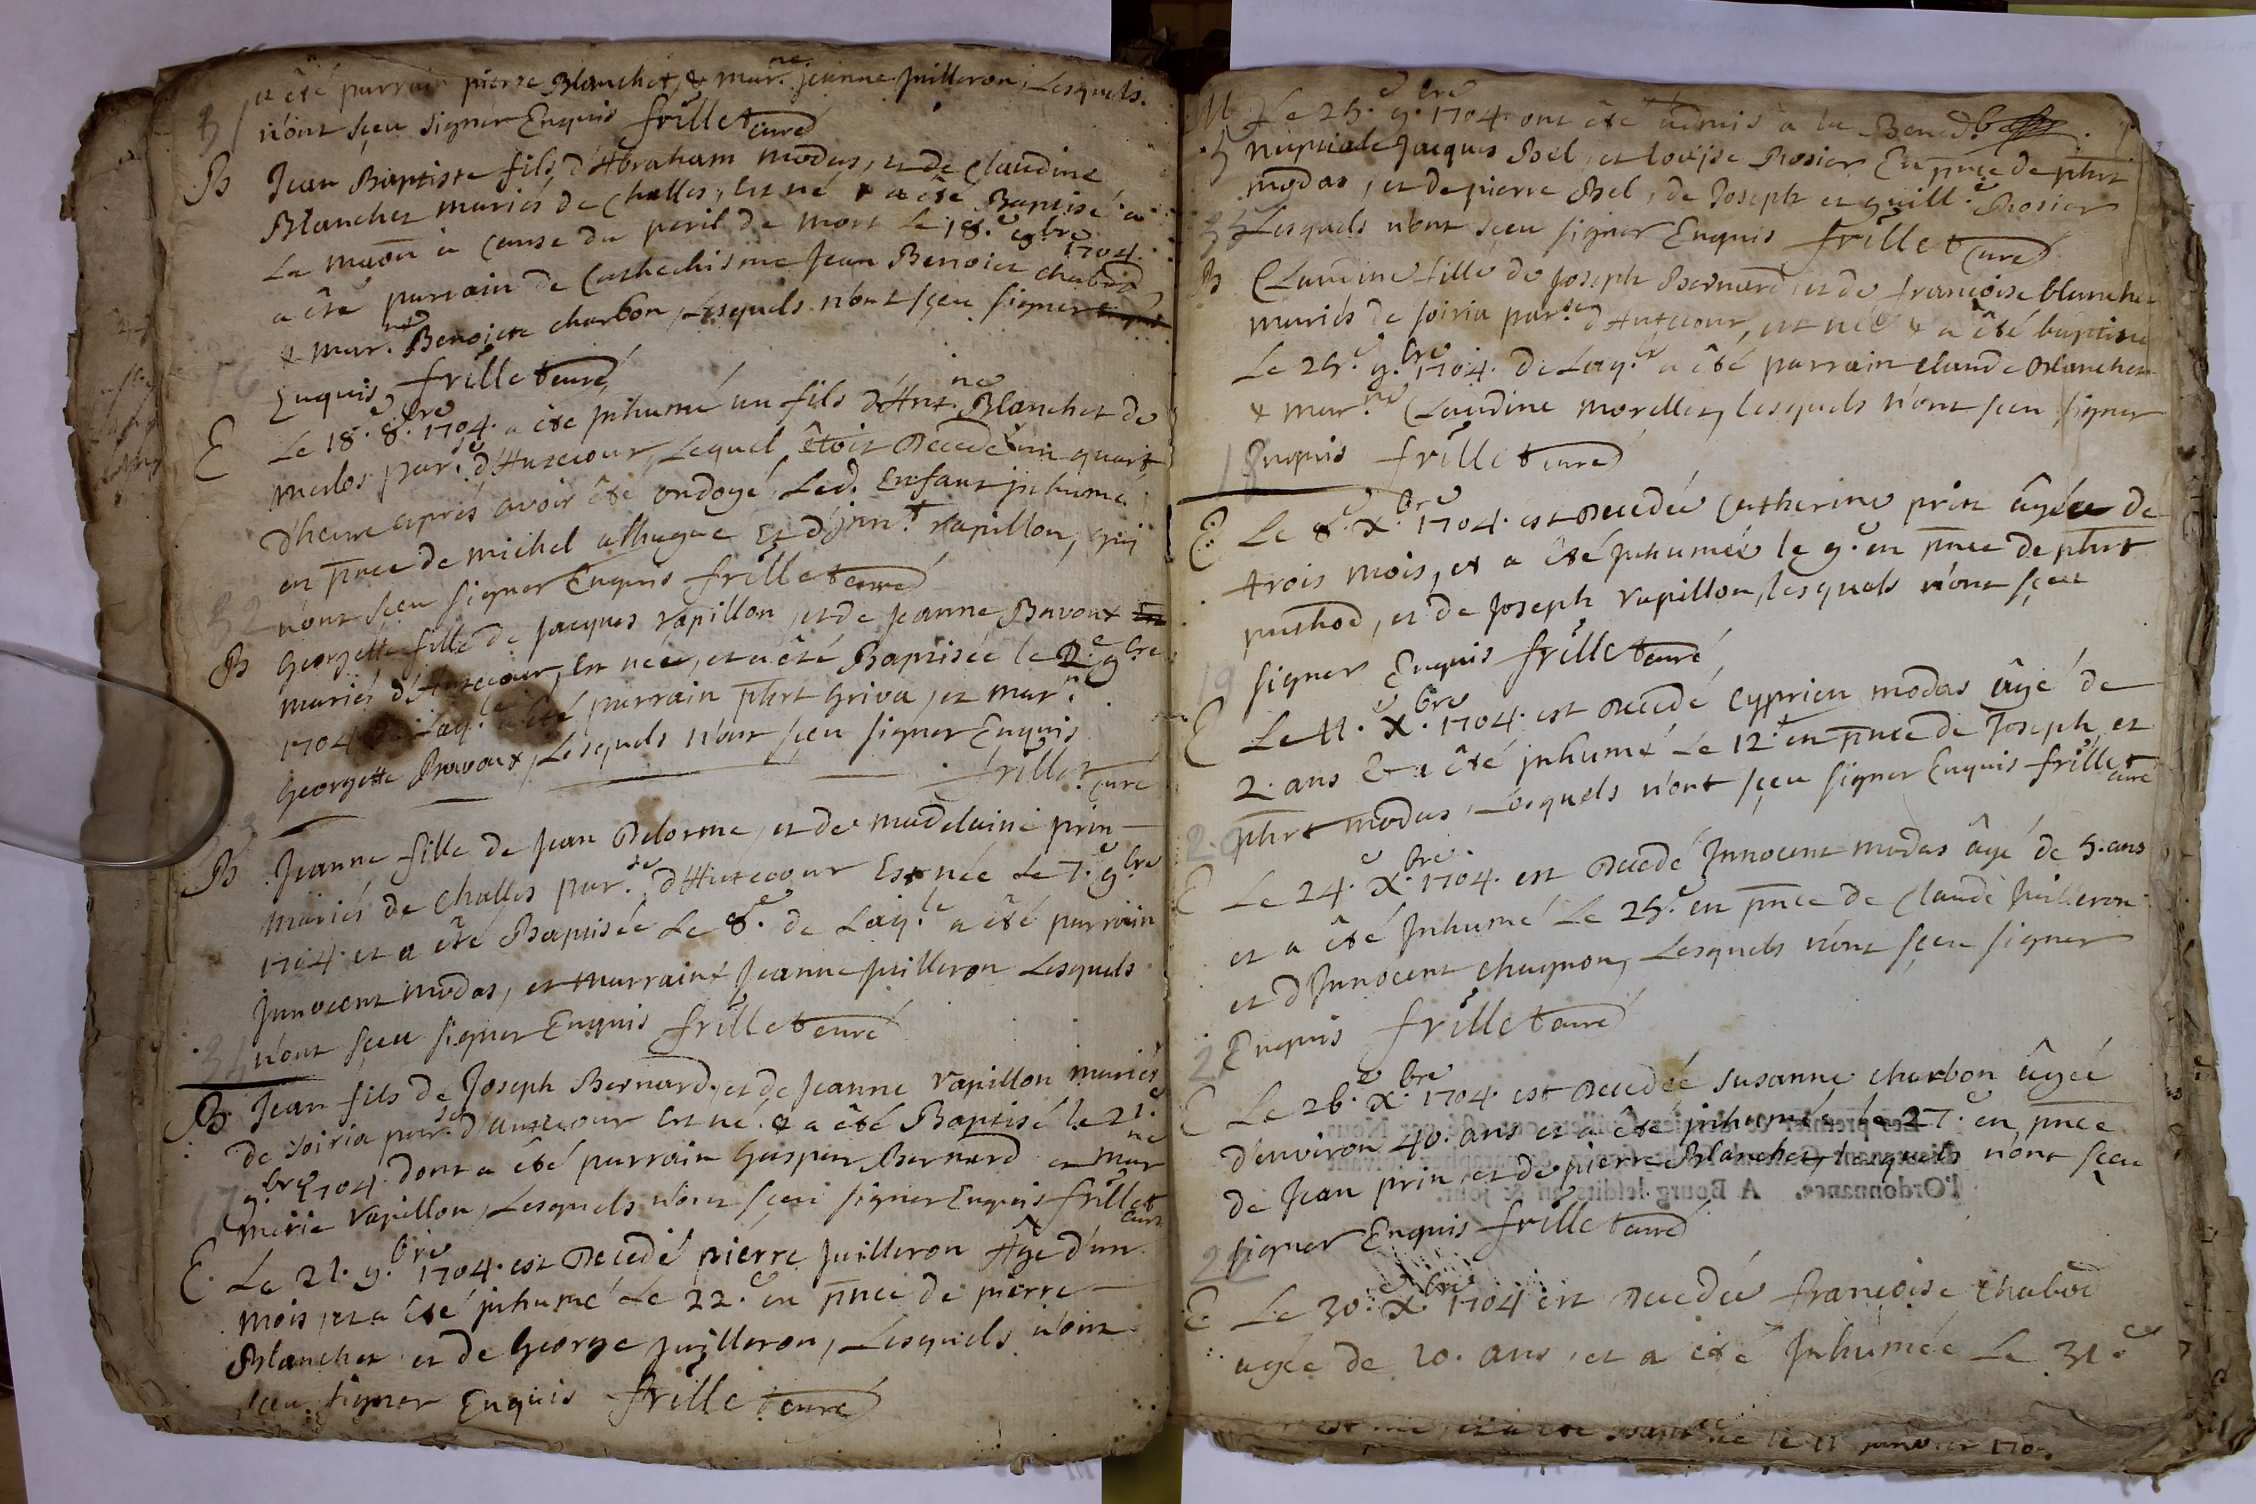 a été parrain pierre Blanchet, & mar.ne jeanne juilleron, Lesquels
31 n'ont sçeu signer Enquis frillet curé
B Jean Baptiste fils d'Abraham modas, et de Claudine
Blanchet mariés de Challes, Est né & a été Baptisé a
La maōn à Cause du peril de mort Le 18.e 9.bre 1704.
a été parrain de Cathechisme Jean Benoict chabod
& mar.ne Benoiete charbon, Lesquels n'ont sçeu signer
Enquis frillet curé
E Le 18.e 8.bre 1704. a été jnhumé un fils d'Ant.ne Blanchet de
merlos par.se d'Autecour, Lequel êtoit Decedé un quart
d'heure aprés avoir été ondoyé. Led. Enfant jnhumé
en p̄nce de michel allhugue Et d'jnn.t rapillon, qui
32 n'ont sçeu signer Enquis frillet curé
B Georgette fille de Jacques rapillon, et de Jeanne Bavoux
mariés d'Autecour, Est née, et a été Baptisée le 2.e 9.bre
1704 de Laq.le a été parrain phrt Griva, et mar.ne
Georgette Bavoux, Lesquels n'ont sçeu signer Enquis
frillet curé
B Jeanne fille de Jean Delorme, et de madelaine prin
mariés de Challes par.se d'Autecour Est née Le 7.e 9.bre
1704. et a été Baptisée Le 8.e de Laq.le a été parrain
Jnnocent modas, et marraine Jeanne juilleron Lesquels
34 n'ont sçeu signer Enquis frillet curé
B Jean fils de Joseph Bernard, et de Jeanne rapillon mariés
de soiria par.se d'autecour Est né & a été Baptisé le 21.e
9.bre 1704. dont a été parrain Gaspar Bernard et mar.ne
17 merie rapillon, Lesquels n'ont sçeu signer Enquis frillet curé
E. Le 21. 9.bre 1704. est Decedé pierre juilleron Âgé d'un
mois, et a été jnhumé Le 22.e en p̄nce de pierre
Blanchet et de George juilleron, Lesquels n'ont
sçeu signer Enquis frillet curé
M Le 25.e 9.bre 1704. ont été admis à la Bened.
nuptiale Jacques Bel, et Loüise Rosier En p̄nce de phrt
modas, et de pierre Bel, de Joseph et guill.e Rosier
35 Lesquels n'ont sçeu signer Enquis frillet curé
B Claudine fille de Joseph Bernard, et de françoise blanchet
mariés de soiria par.se d'Autecour, est née & a été baptisée
Le 25.e 9.bre 1704. de Laq.le a été parrain claude Blanchet
& mar.ne Claudine morellet, lesquels n'ont sçeu signer
18 Enquis frillet curé
E Le 8.e X.bre 1704. est Decedée Catherine prin âgée de
trois mois, et a été jnhumée le 9.e en p̄nce de phrt
puthod, et de Joseph rapillon, lesquels n'ont sçeu
19 signer Enquis frillet curé
E Le 11.e X.bre 1704. est Decedé Cyprien modas âgé de
2. ans Et a été jnhumé Le 12.e en p̄nce de Joseph, et
20 phrt modas, Lesquels n'ont sçeu signer Enquis frillet curé
E Le 24.e X.bre 1704. est Decedé Jnnocent modas âgé de 5. ans
et a été Jnhumé Le 25.e en p̄nce de Claude juilleron
et d'Jnnocent chagnon, Lesquels n'ont sçeu signer
21 Enquis frillet curé
E Le 26.e X.bre 1704. est Decedée susanne charbon âgée
d'environ 40. ans et a été jnhumée le 27.e en p̄nce
de Jean prin, et de pierre Blanchet, lesquels n'ont sçeu
22 signer Enquis frillet curé
E. Le 30.e X.bre 1704 est Decedée françoise chabod
agée de 20. ans, et a été Jnhumée Le 31.e
est né, et a été le 11 janvier 170